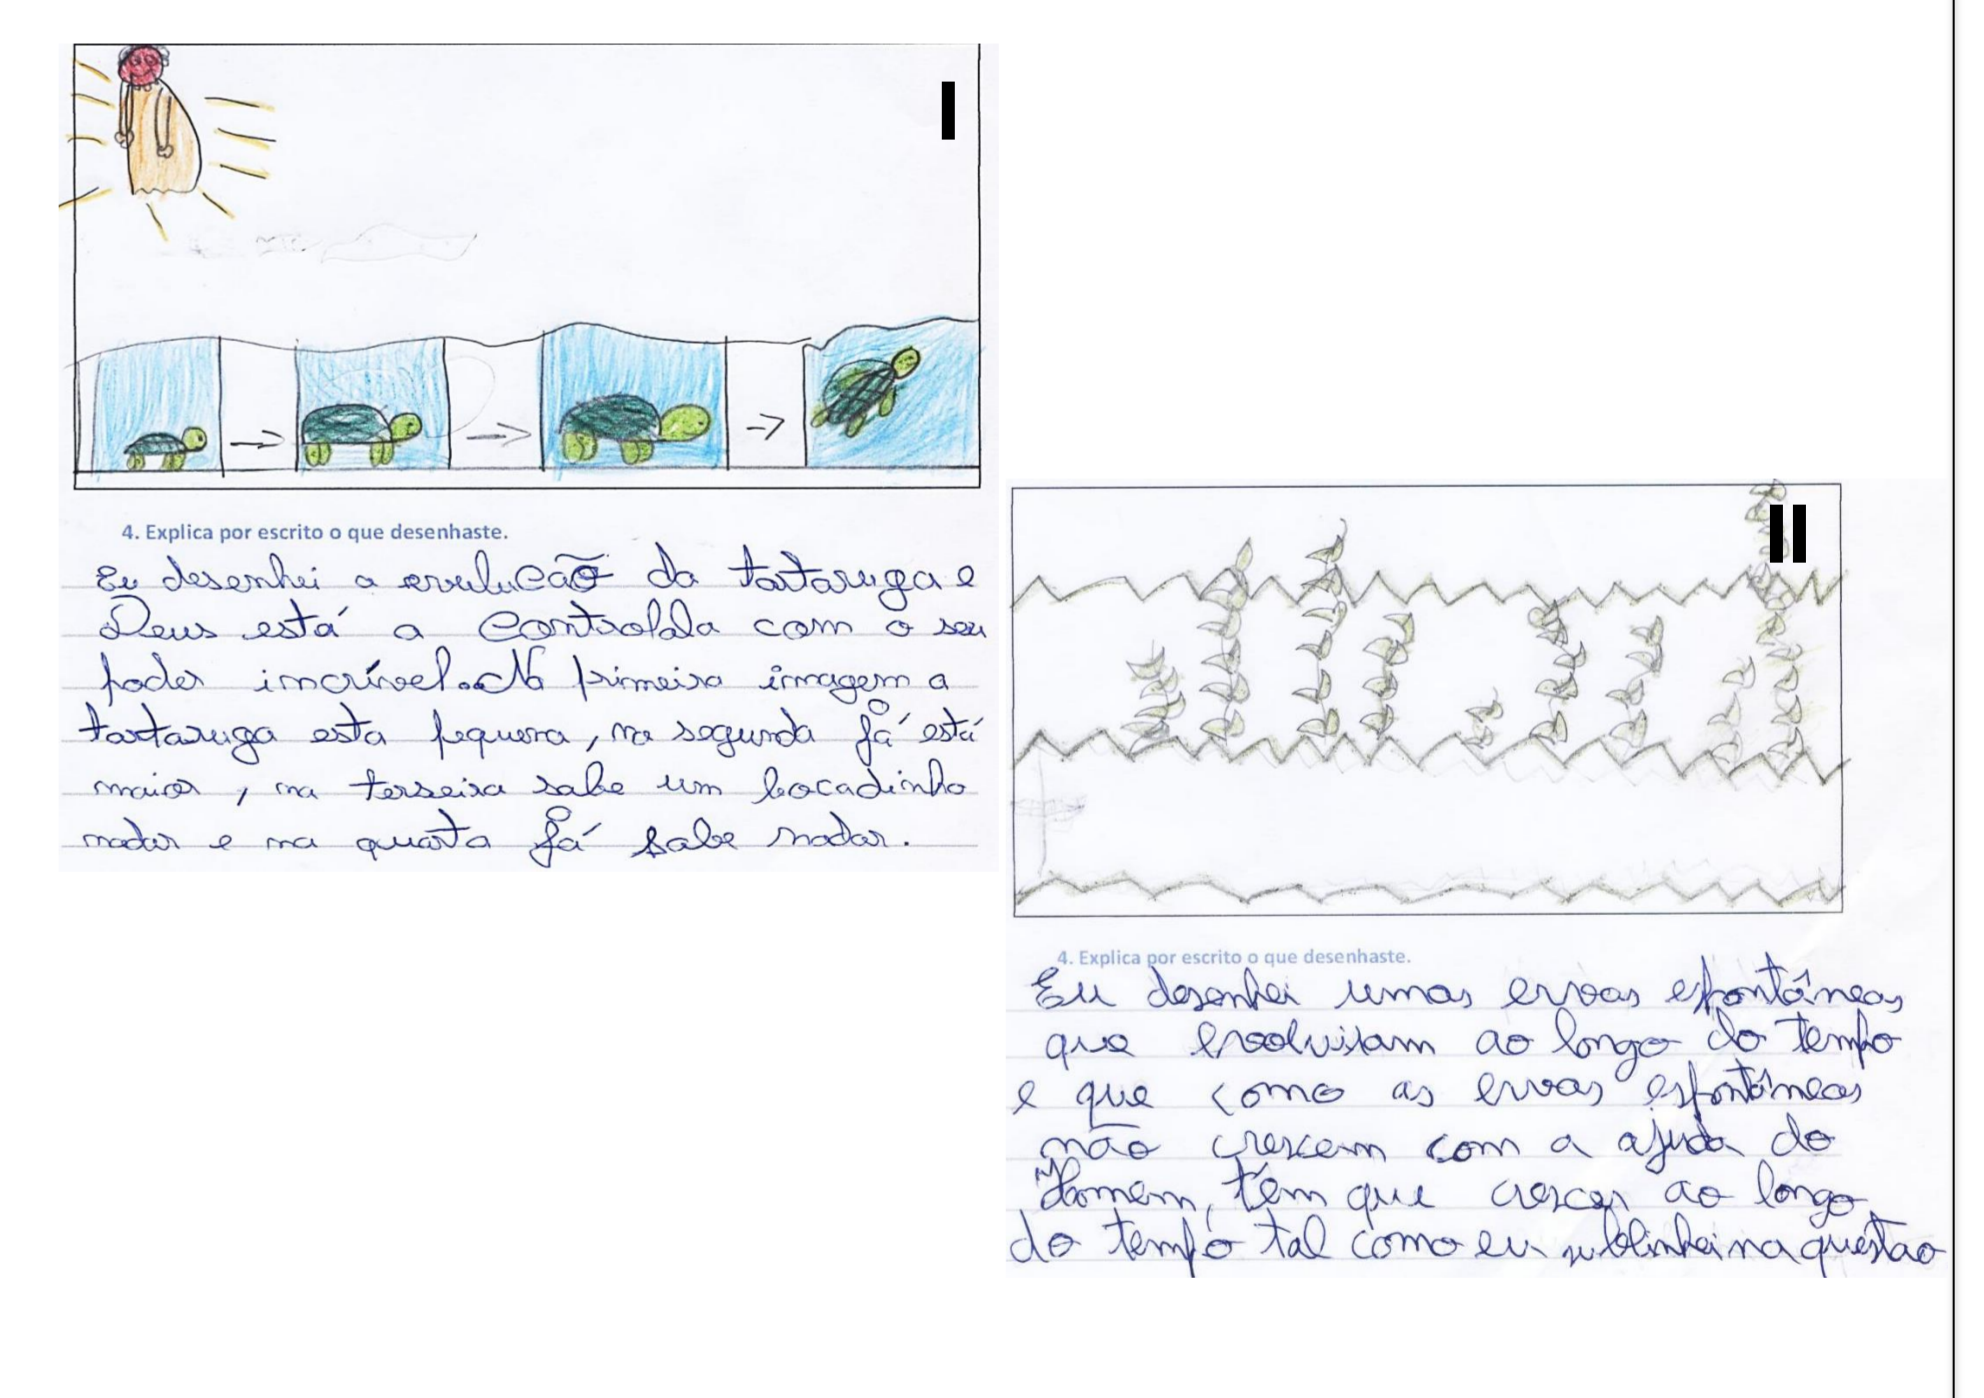 I
4. Explica por escrito o que desenhaste.
Eu desenhei a evulução da tartaruga e
Deus está a controlala com o seu
poder incrível. Na primeira imagem a
tartaruga esta pequena, na segunda já está
maior, na terseira sabe um bocadinho
nadar e na quarta já sabe nadar.
II
4. Explica por escrito o que desenhaste.
Eu desenhei umas ervas espontâneas
que evoluiram ao longo do tempo
e que como as ervas espontâneas
não crescem com a ajuda do
Homem, têm que crescer ao longo
do tempo tal como eu sublinhei na questao